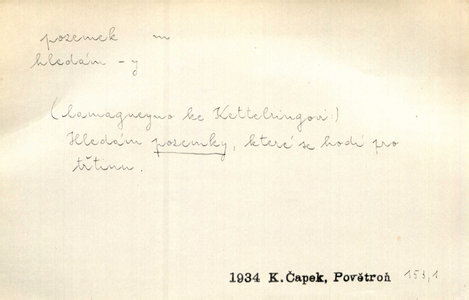 pozemek m
hledám -y
(Camagueyno ke Kettelringovi:)
Hledám pozemky, které se hodí pro
třtinu.
1934 K.Čapek, Povětroň 153,1